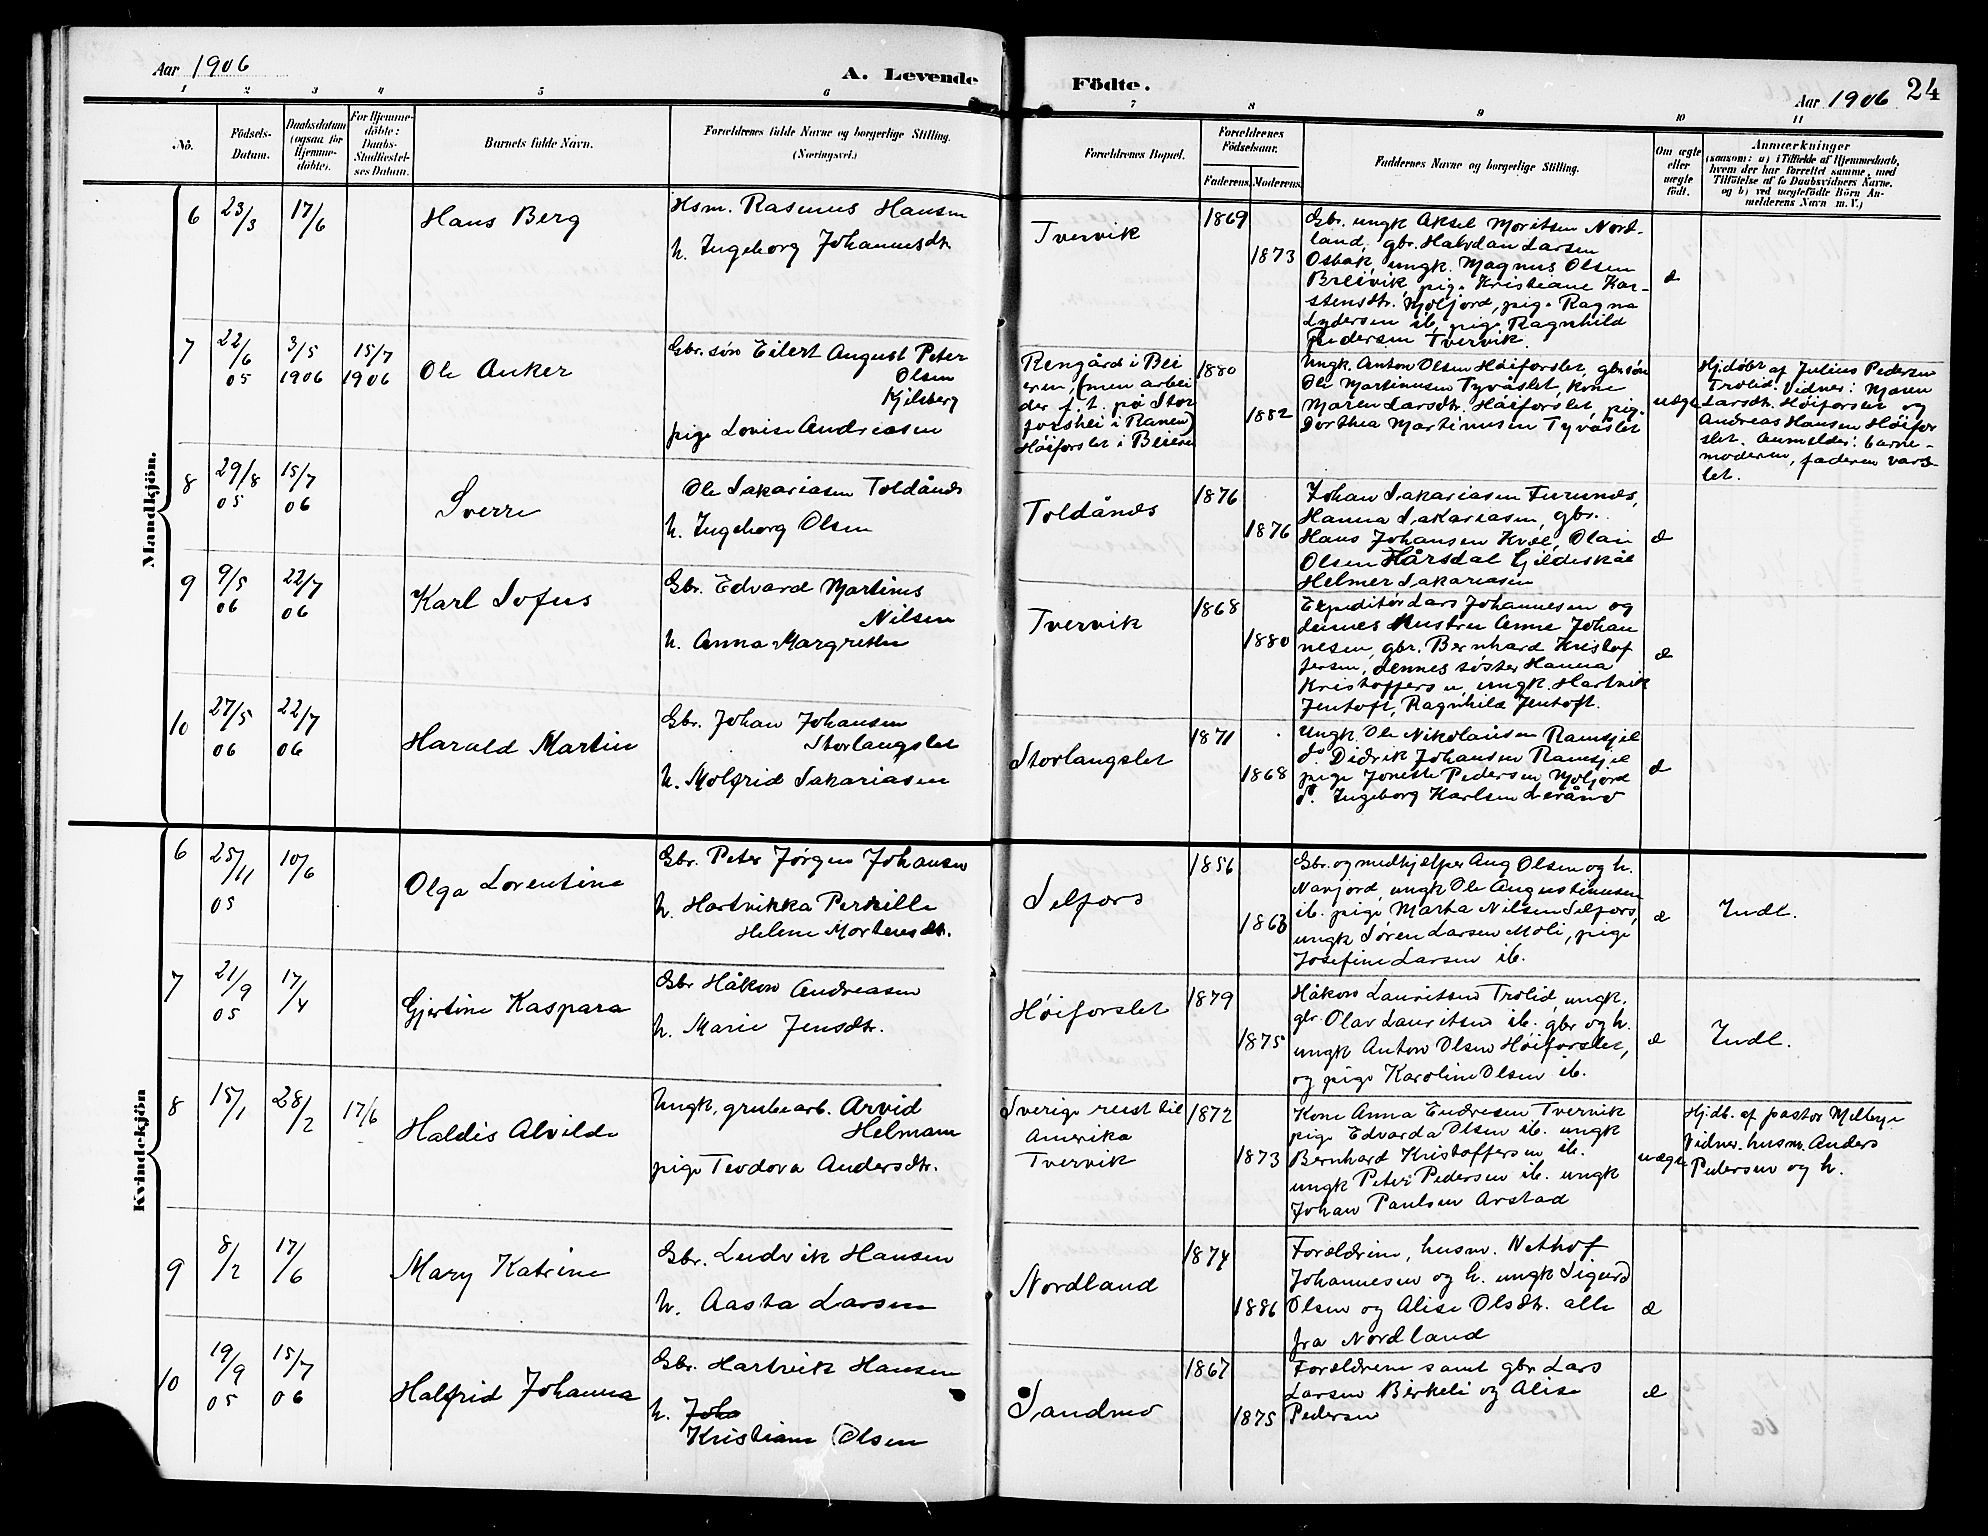 Aar 1906
A. Levende
Födte.
Aar 1906
24
1 2 3 4 5 6 7 8 9 10 11
No.
Födsels-Datum.
Daabsdatum (ogsaa for Hjemme-döbte).
For Hjemme-döbte: Daabs-Stadfæstel-ses Datum.
Barnets fulde Navn.
Forældrenes fulde Navne og borgerlige Stilling.
(Næringsvei.)
Forældrenes Bopæl.
Forældrenes Födselsaar.
Faderens. Moderens.
Faddernes Navne og borgerlige Stilling.
Om ægte eller uægte födt.
Anmærkninger
(saasom: a) i Tilfælde af Hjemmedaab, hvem der har forrettet samme, med Tilföielse af to Daabsvidners Navne, og b) ved uægtefödte Börn An-melderens Navn m. V.)
Mandkjön.
6 23/3 17/6
Hans Berg
Hsm. Rasmus Hansen
h. Ingeborg Johannesdtr.
Tvervik
1869
1873
Gbr. ungk Aksel Moritsen Nord-
land, gbr. Halvdan Larsen
Osbak, ungk. Magnus Olsen
Breivik, pige Kristiane Kar-
stensdtr. Moljord, pige Ragna
Lydersen ib, pige Ragnhild
Pedersen Tvervik.
æ
7 22/6 05 3/5 1906 15/7 1906
Ole Anker
Gbr.søn Eilert August Peter
Olsen
Kjilsberg
pige Lovise Andreasen
Rengård i Bei
eren, (men arbei
der f. t. på Stor
forshei i Ranen)
Høiforslet i Beieren
1880
1882
Ungk. Anton Olsen Høiforslet, gbrsøn
Ole Martinusen Tyvåslet, kone
Maren Larsdtr. Høiforslet, pige
Dorthea Martinusen Tyvåslet
uægte
Hjdøbt af Julius Pedersen
Trolid. Vidner: Maren
Larsdtr. Høiforslet og
Andreas Hansen Høifor
slet. Anmelder: barne-
moderen, faderen vars-
let.
8 29/8 05 15/7 06
Sverre
Ole Sakariasen Toldånes
h. Ingeborg Olsen
Toldånes
1876
1876
Johan Sakariasen Furunes,
Hanna Sakariasen, gbr.
Hans Johansen Kvæl, Olai
Olsen Hårsdal Gildeskål
Helmer Sakariasen
æ
9 9/5 06 22/7 06
Karl Sofus
Gbr. Edvard Martinus
Nilsen
h. Anna Margrethe
Tvervik
1868
1880
Expeditør Lars Johannesen og
dennes Hustru Anne Johan
nesen, gbr. Bernhard Kristof
fersen, dennes søster Hanna
Kristoffersen, ungk. Hartvik
Jentoft, Ragnhild Jentoft.
æ
10 27/5 06 22/7 06
Harald Martin
Gbr. Johan Johansen
Storlangslet
h. Molfrid Sakariasen
Storlangslet
1871
1868
Ungk. Ole Nikolaisen Ramsjel
do. Didrik Johansen Ramsjel
pige Jonette Pedersen Moljord
do. Ingeborg Karlsen Leirånd
æ
Kvindekjön
6 25/11 05 10/6
Olga Lorentine
Gbr. Peter Jørgen Johansen
h. Hartvikka Pernille
Helene Mortensdtr.
Selfors
1856
1863
Gbr. og medhjelper Aug Olsen og h.
Navjord, ungk Ole Augustinusen
ib. pige Marta Nilsen Selfors,
ungk Søren Larsen Moli, pige
Josefine Larsen ib.
æ
Indl.
7 21/9 05 17/4
Gjertine Kaspara
Gbr Håkon Andreasen
h. Marie Jensdtr.
Høiforslet
1879
1875
Håkon Lauritsen Trolid, ungk.
gbr. Olav Lauritsen ib. gbr og h.
ungk Anton Olsen Høiforslet,
og pige Karoline Olsen ib.
æ
Indl.
8 15/1 28/2 17/6
Haldis Alvilde
Ungk, grubearb. Arvid
Helmann
pige Teodora Andersdtr.
Sverige reist til
Amerika
Tvervik
1872
1873
Kone Anna Endresen Tvervik
pige Edvarda Olsen ib. ungk
Bernhard Kristoffersen ib.
ungk Peter Pedersen ib. ungk
Johan Paulsen Arstad
uægte
Hjdb. af pastor Melbye
Vidner. husm. Anders
Pedersen og h.
9 8/2 17/6
Mary Katrine
Gbr. Ludvik Hansen
h. Aasta Larsen
Nordland
1874
1886
Forældrene, husm. Nethof
Johannesen og h. ungk Sigurd
Olsen og Alise Olsdtr. alle
fra Nordland
æ
10 19/9 05 15/7 06
Halfrid Johanna
Gbr. Hartvik Hansen
h. Joha
Kristiane Olsen
Sandmo
1867
1875
Forældrene samt gbr Lars
Larsen Birkeli og Alise
Pedersen
æ